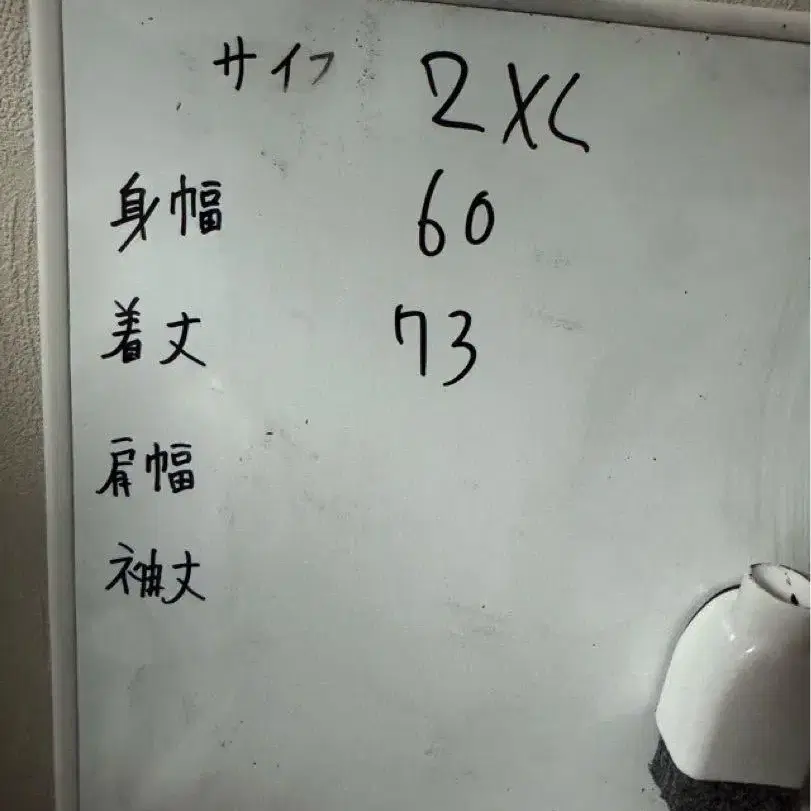 サイズ 2XL
身幅 60
着丈 73
肩幅
袖丈